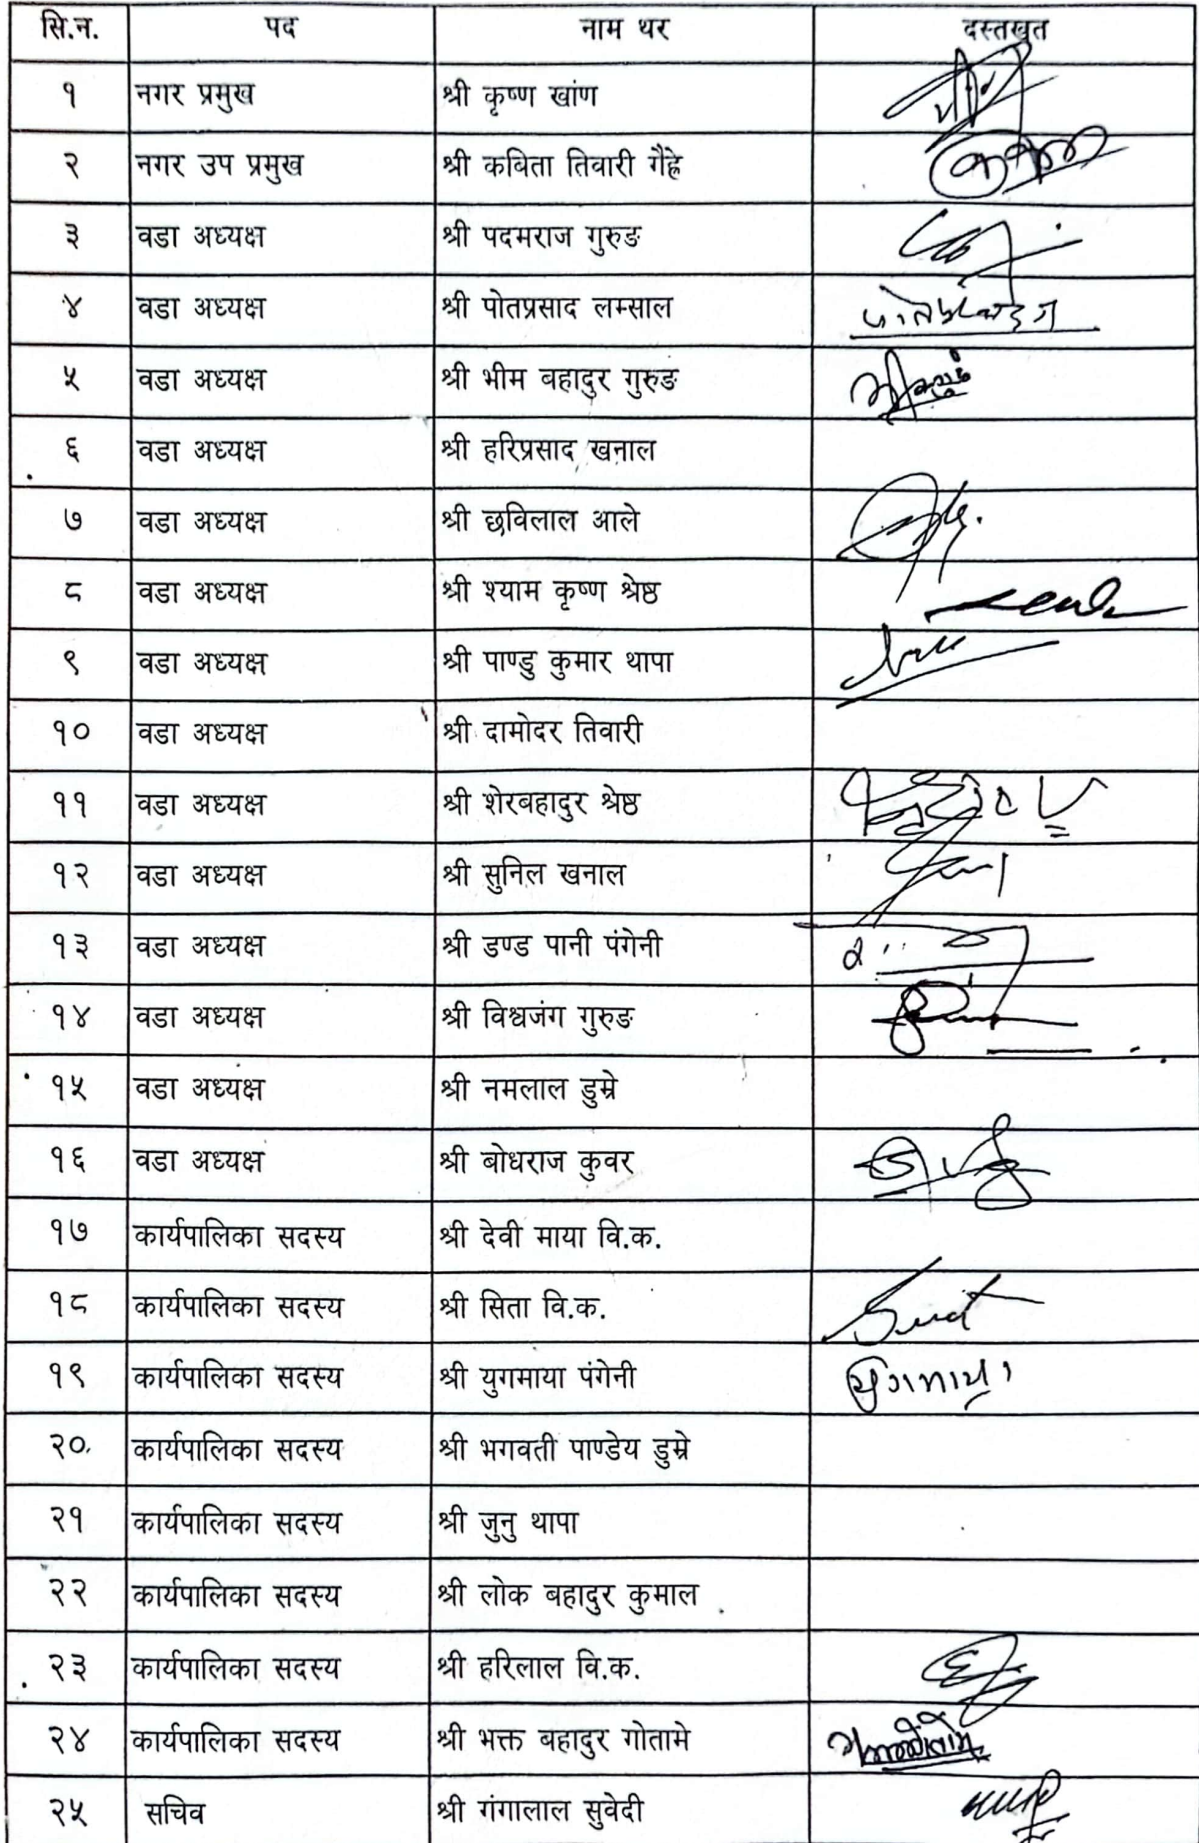 सि.न. पद नाम थर दस्तखत
१ नगर प्रमुख श्री कृष्ण खांण
२ नगर उप प्रमुख श्री कबिता तिवारी गैह्रे
३ वडा अध्यक्ष श्री पदमराज गुरुङ
४ वडा अध्यक्ष श्री पोतप्रसाद लम्साल
५ वडा अध्यक्ष श्री भीम बहादुर गुरुङ
६ वडा अध्यक्ष श्री हरिप्रसाद खनाल
७ वडा अध्यक्ष श्री छविलाल आले
८ वडा अध्यक्ष श्री श्याम कृष्ण श्रेष्ठ
९ वडा अध्यक्ष श्री पाण्डु कुमार थापा
१० वडा अध्यक्ष श्री दामोदर तिवारी
११ वडा अध्यक्ष श्री शेरबहादुर श्रेष्ठ
१२ वडा अध्यक्ष श्री सुनिल खनाल
१३ वडा अध्यक्ष श्री डण्ड पानी पंगेनी
१४ वडा अध्यक्ष श्री विश्वजंग गुरुङ
१५ वडा अध्यक्ष श्री नमलाल डुम्रे
१६ वडा अध्यक्ष श्री बोधराज कुवर
१७ कार्यपालिका सदस्य श्री देवी माया वि.क.
१८ कार्यपालिका सदस्य श्री सिता वि.क.
१९ कार्यपालिका सदस्य श्री युगमाया पंगेनी युगमाया
२० कार्यपालिका सदस्य श्री भगवती पाण्डेय डुम्रे
२१ कार्यपालिका सदस्य श्री जुनु थापा
२२ कार्यपालिका सदस्य श्री लोक बहादुर कुमाल
२३ कार्यपालिका सदस्य श्री हरिलाल वि.क.
२४ कार्यपालिका सदस्य श्री भक्त बहादुर गोतामे
२५ सचिव श्री गंगालाल सुवेदी